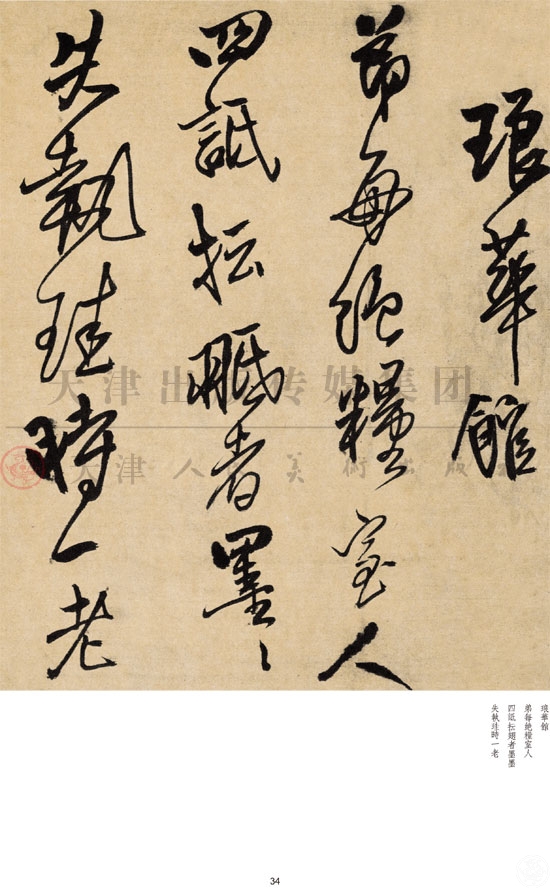 琅華館
弟每絕糧室人
四詆抎者墨〻
失執珪時一老
天津出版传媒集团
天津人民美術出版社
琅華館
弟每絕糧室人
四詆抎者墨墨
失執珪時一老
34